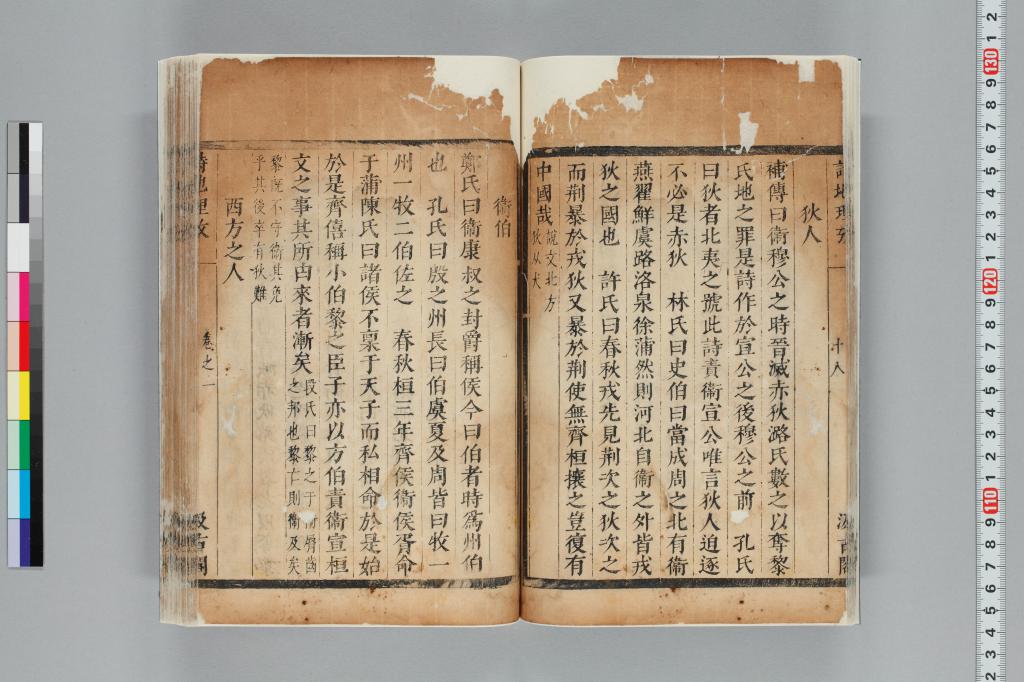 狄人
補傳曰衞穆公之時晉滅赤狄潞氏數之以奪黎
氏地之罪是詩作於宣公之後穆公之前　孔氏
曰狄者北夷之號此詩責衞宣公唯言狄人迫逐
不必是赤狄　林氏曰史伯曰當成周之北有衞
燕翟鮮虞路洛泉徐蒲然則河北自衞之外皆戎
狄之國也　許氏曰春秋戎先見荆次之狄次之
而荆暴於戎狄又暴於荆使無齊桓攘之豈復有
中國哉說文北方狄从犬
衞伯
鄭氏曰衞康叔之封爵稱侯今曰伯者時爲州伯
也　孔氏曰殷之州長曰伯虞夏及周皆曰牧一
州一牧二伯佐之　春秋桓三年齊侯衞侯胥命
于蒲陳氏曰諸侯不稟于天子而私相命於是始
於是齊僖稱小伯黎之臣子亦以方伯責衞宣桓
文之事其所由來者漸矣段氏曰黎之于衞脣齒之邦也黎亡則衞及矣
黎旣不守衞其免乎其後幸有狄難
西方之人
詩地理攷
一
卷之一
十八
汲古閣